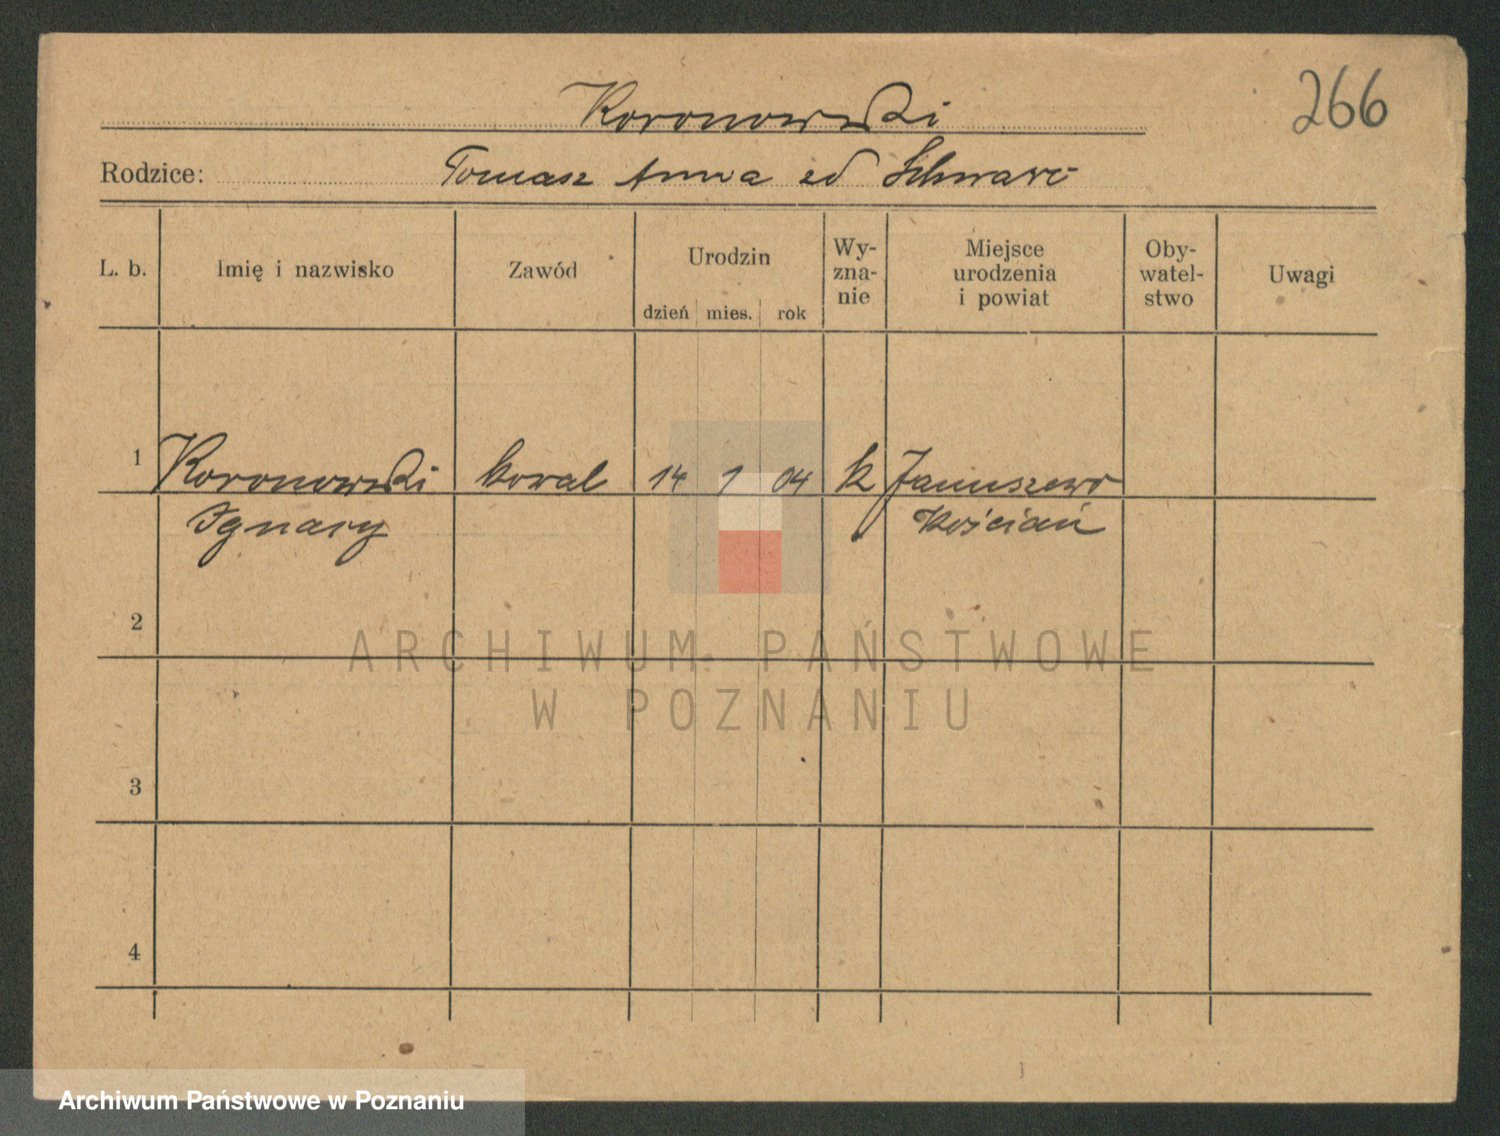 266
Koronowski
Rodzice: Tomasz Anna zd
L. b. Imię i nazwisko Zawód Urodzin dzień mies. rok Wy-zna-nie Miejsce urodzenia i powiat Oby-watel-stwo Uwagi
1 Koronowski kowal 14 1 04 k Januszewo
Ignacy Kościan
2
ARCHIWUM PAŃSTWOWE
W POZNANIU
3
4
Archiwum Państwowe w Poznaniu